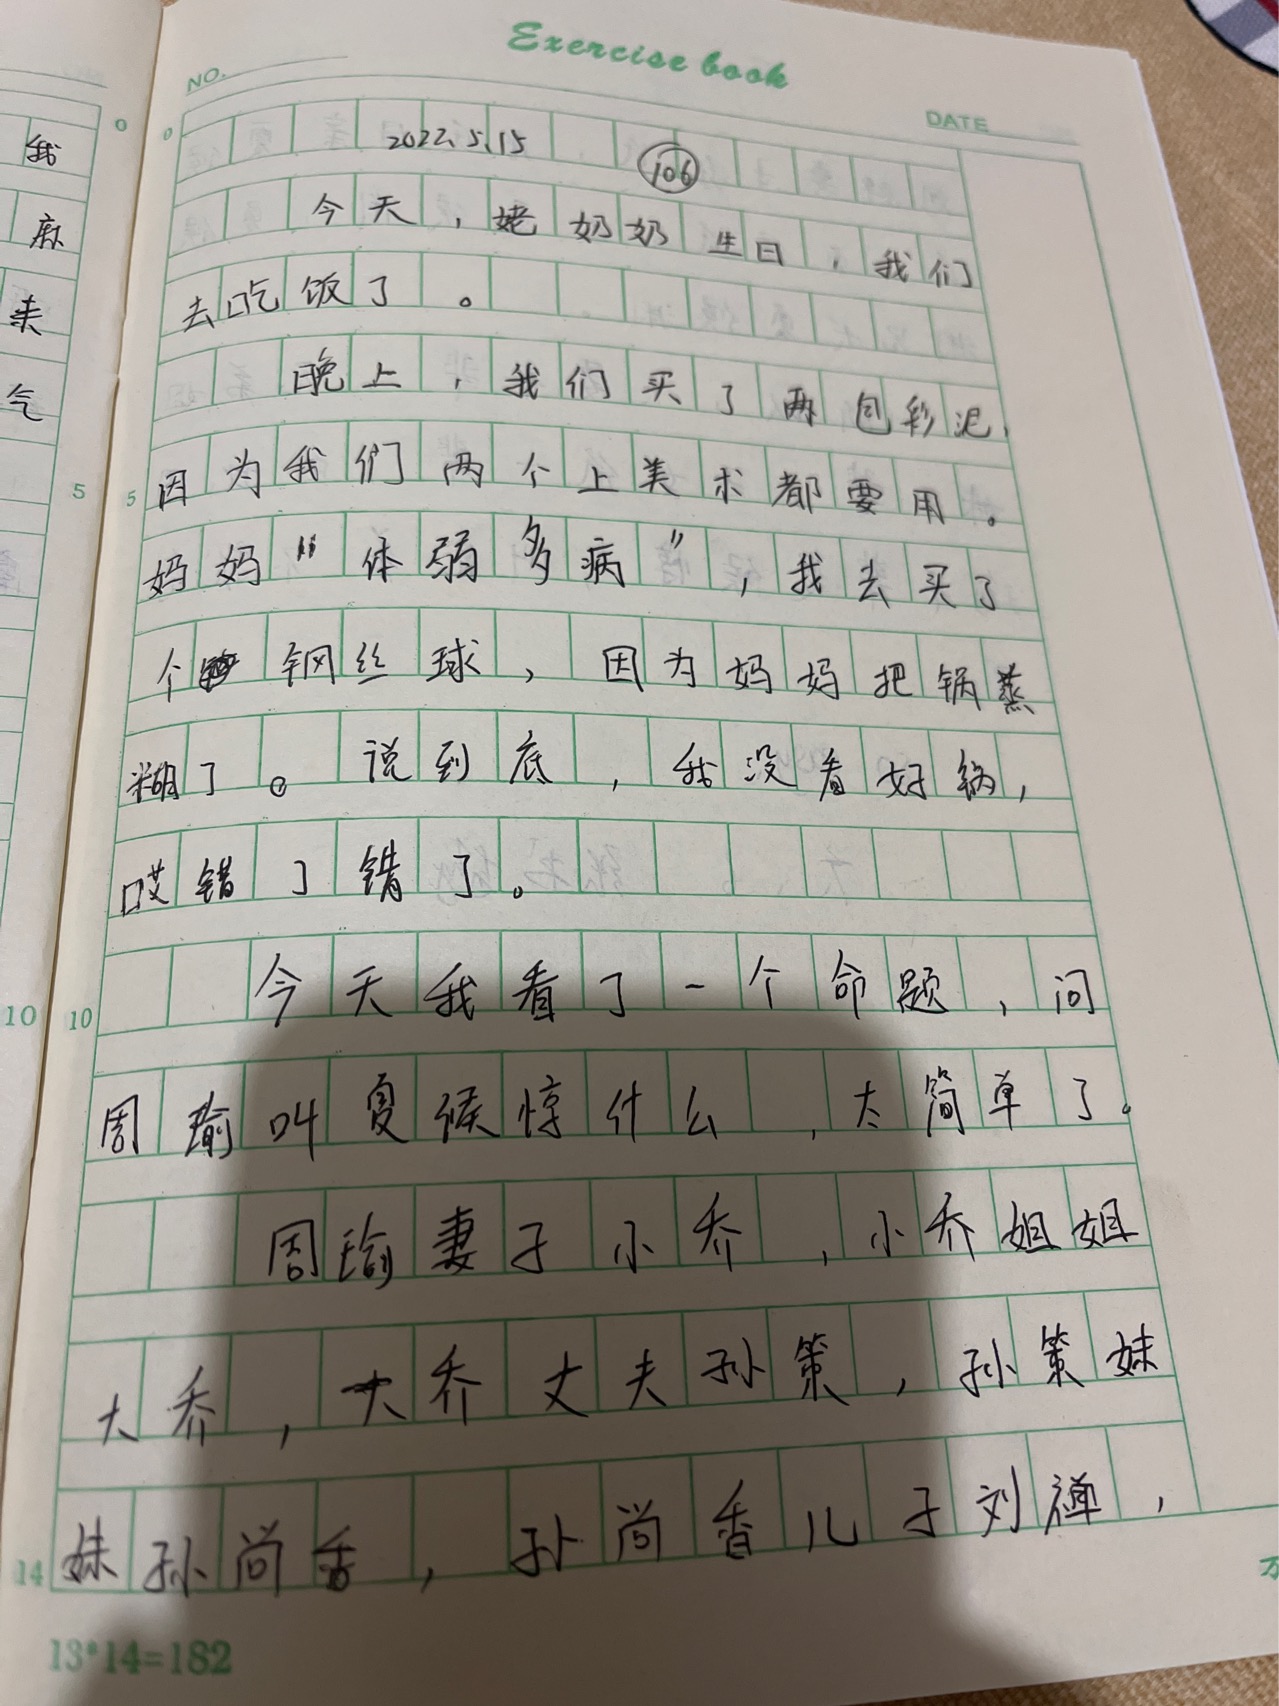 Exercise book
NO.
DATE
2022.5.15
106
今天，姥奶奶生日，我们
去吃饭了。
晚上，我们买了两包彩泥，
因为我们两个上美术都要用。
妈妈“体弱多病”，我去买了
个钢丝球，因为妈妈把锅蒸
糊了。说到底，我没看好锅，
哎错了错了。
今天我看了一个命题，问
周瑜叫夏候惇什么，太简单了。
周瑜妻子小乔，小乔姐姐
大乔，大乔丈夫孙策，孙策妹
妹孙尚香，孙尚香儿子刘禅，
0
5
10
14
13*14=182
我
麻
来
气
0
5
10